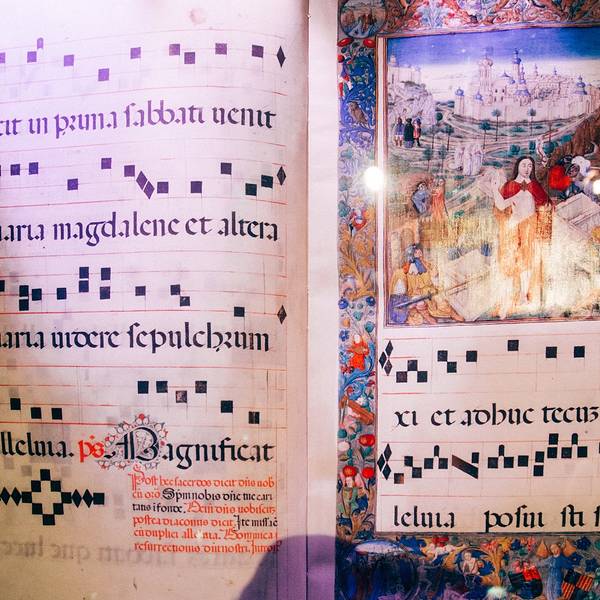 cit in prima sabbati uenit
aria magdalene et altera
aria uidere sepulchrum
lleluia. ps Magnificat
Post hec sacerdos dicit dns uob
Spm nobis dne tue cari
tatis infonde. Dns uobiscū
postea diaconus dicit. Ite missa
cū duplici alleluia.
resurrectionis dni nostri.
xi et adhuc tecu
leluia posui sti s